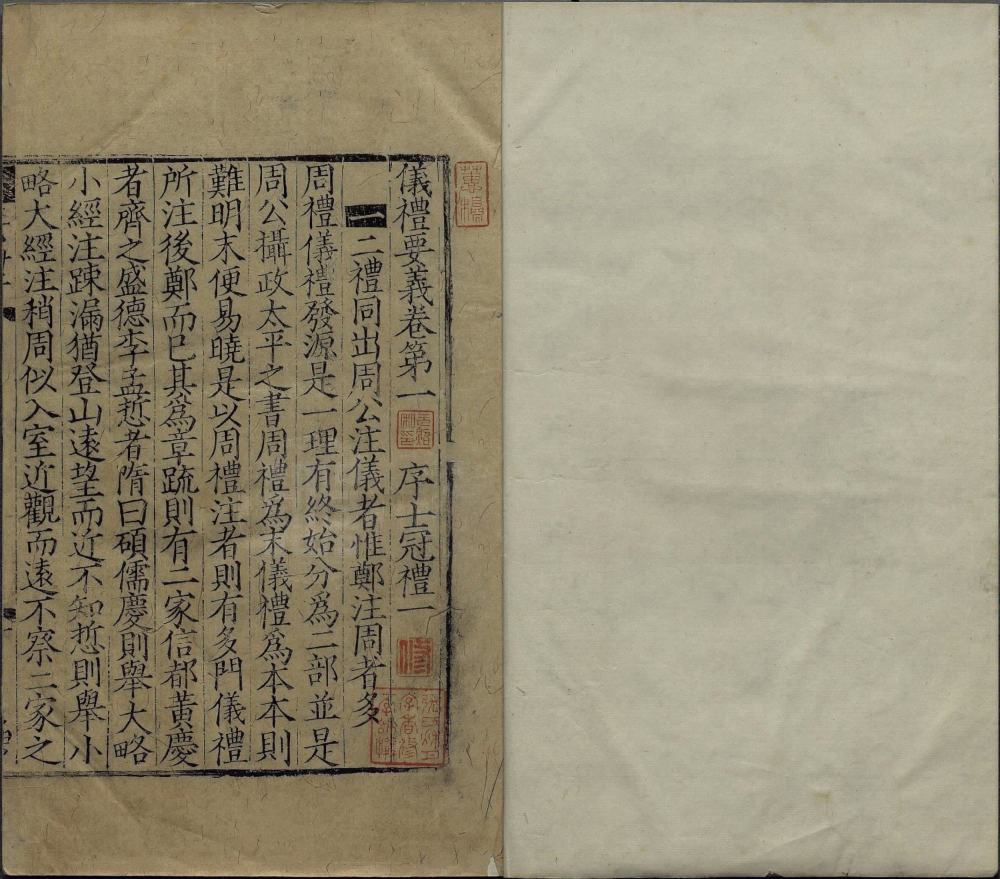 儀禮要義卷第一 序士冠禮一
一 二禮同出周公注儀者惟鄭注周者多
周禮儀禮發源是一理有終始分爲二部並是
周公攝政太平之書周禮爲末儀禮爲本本則
難明末便易曉是以周禮注者則有多門儀禮
所注後鄭而已其爲章疏則有二家信都黃慶
者齊之盛德李孟悊者隋曰碩儒慶則舉大略
小經注踈漏猶登山遠望而近不知悊則舉小
略大經注稍周似入室近觀而遠不察二家之